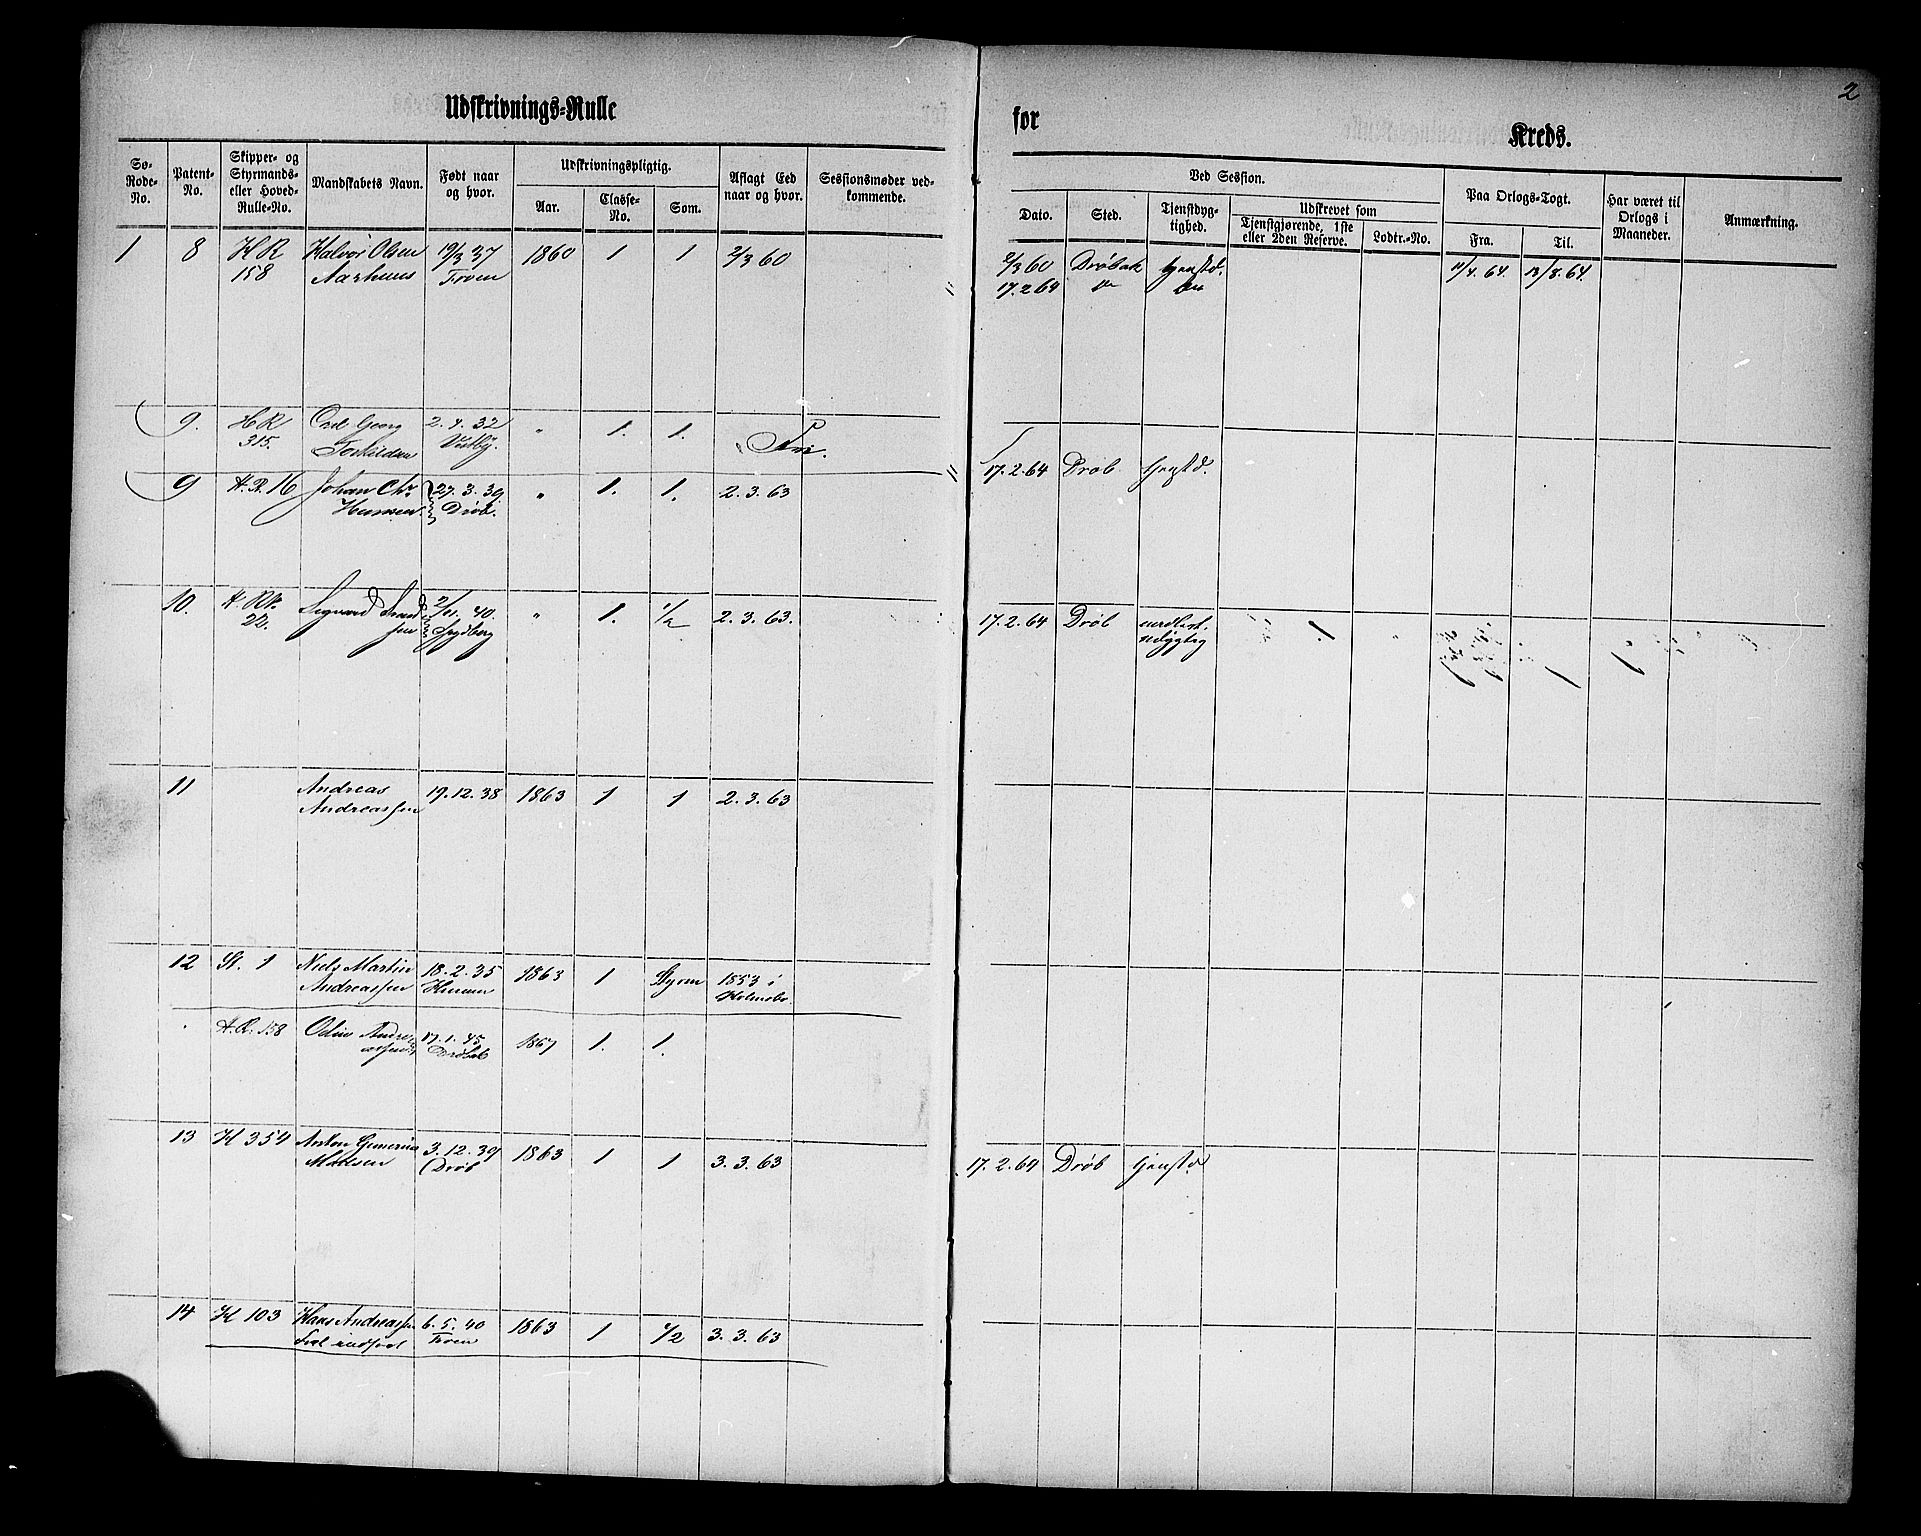 2
Udskrivnings-Rulle for Kreds.
Sø-Rode-No. Patent-No. Skipper- og Styrmands- eller Hoved-Rulle-No. Mandskabets Navn. Født naar og hvor. Udskrivningspligtig. Aar. Classe-No. Som. Aflagt Eed naar og hvor. Sessionsmøder vedkommende.
Ved Session. Dato. Sted. Tjenstdygtighed. Udskrevet som Tjenstgjørende, 1ste eller 2den Reserve. Lodtr.-No. Paa Orlogs-Togt. Fra. Til. Har været til Orlogs i Maaneder. Anmærkning.
1 8 H R Halvor Olsen 19/3 37 1860 1 1 2/3 60 2/3 60 Drøbak tjenstd. 11/4. 64. 13/8. 64.
158 Aarhuus Froen 17. 2 64
9. H R Carl Georg 2. 4. 32 " 1. 1.
315. Torkildsen Vestby.
9 H. R. 16 Johan Chr 27. 3. 39. " 1. 1. 2. 3. 63 17. 2. 64 Drøb tjenstd.
Hansen Drøb.
10. H. R. 2/11. 40. " 1. 1/2 2. 3. 63. 17. 2. 64 Drøb
22. Sigvard sen
11 Andreas 19. 12. 38 1863 1 1 2. 3. 63
Andreassen
12 St. 1 Niels Martin 18. 2. 35 1863 1 Styrm 1853 i
Andreassen Hurum Holmsbo
H. R. 158 Odin Andre 17. 1. 45 1867 1. 1.
assen Drøbak
13 H 354 Anton Gunerius 3. 12. 39 1863 1 1 3. 3. 63 17. 2. 64 Drøb tjenstd.
Madsen Drøb
14 H 103 Hans Andreassen 6. 5. 40 1863 1 1/2 3. 3. 63
Froen